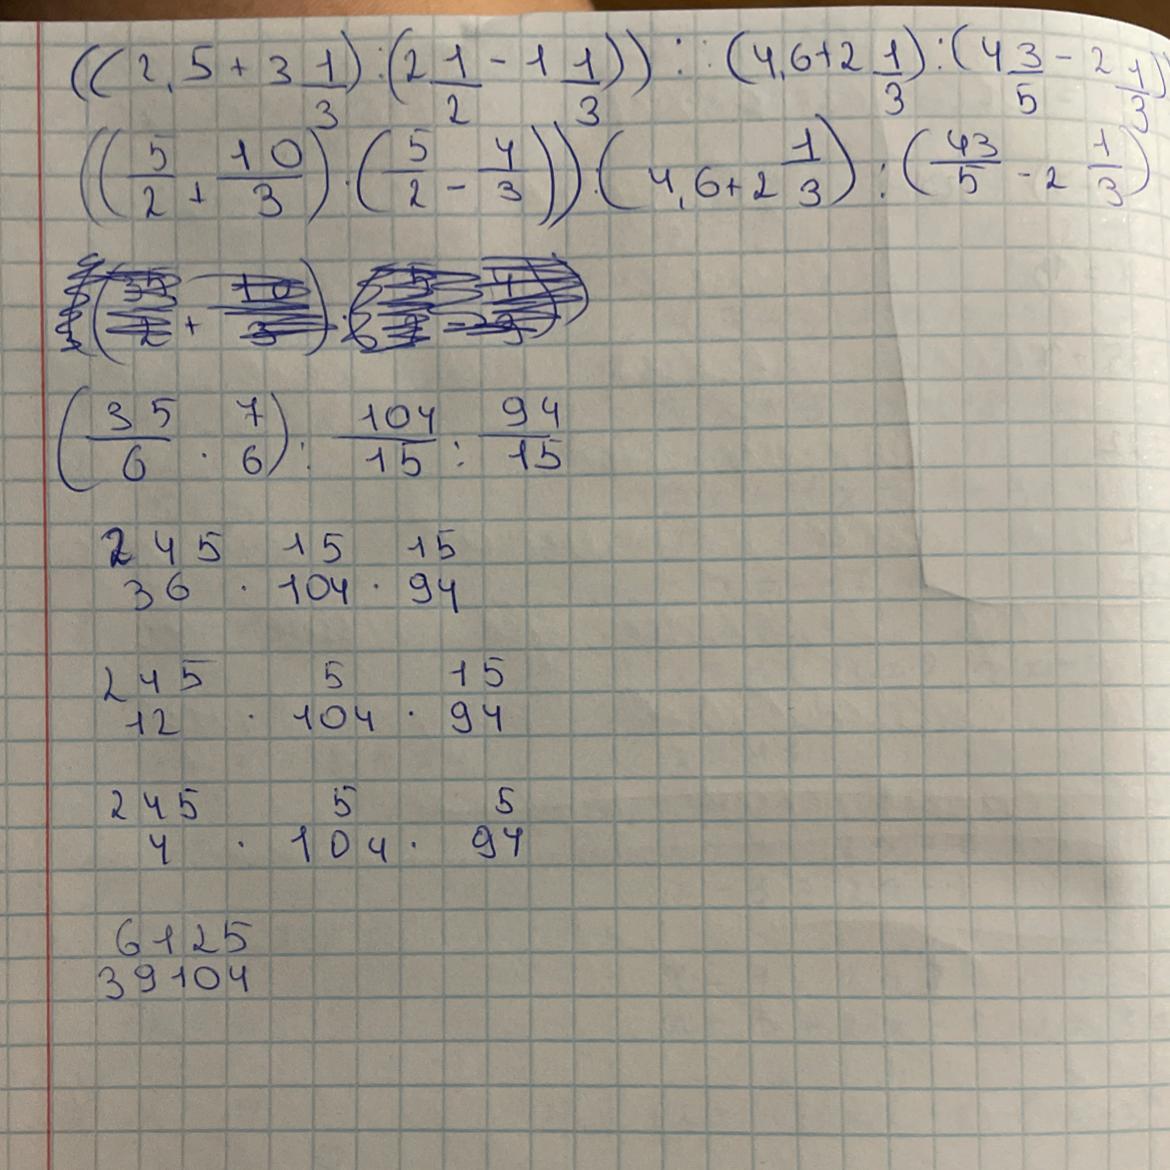 ((2,5+3 1/3):(2 1/2-1 1/3)) : (4,6+2 1/3):(4 3/5-2 1/3)
((5/2+10/3)·(5/2-4/3)):(4,6+2 1/3):(43/5-2 1/3)
(35/6·7/6):104/15:94/15
245 15 15
36 · 104 · 94
245 5 15
12 · 104 · 94
245 5 5
4 · 104 · 94
6125
39104